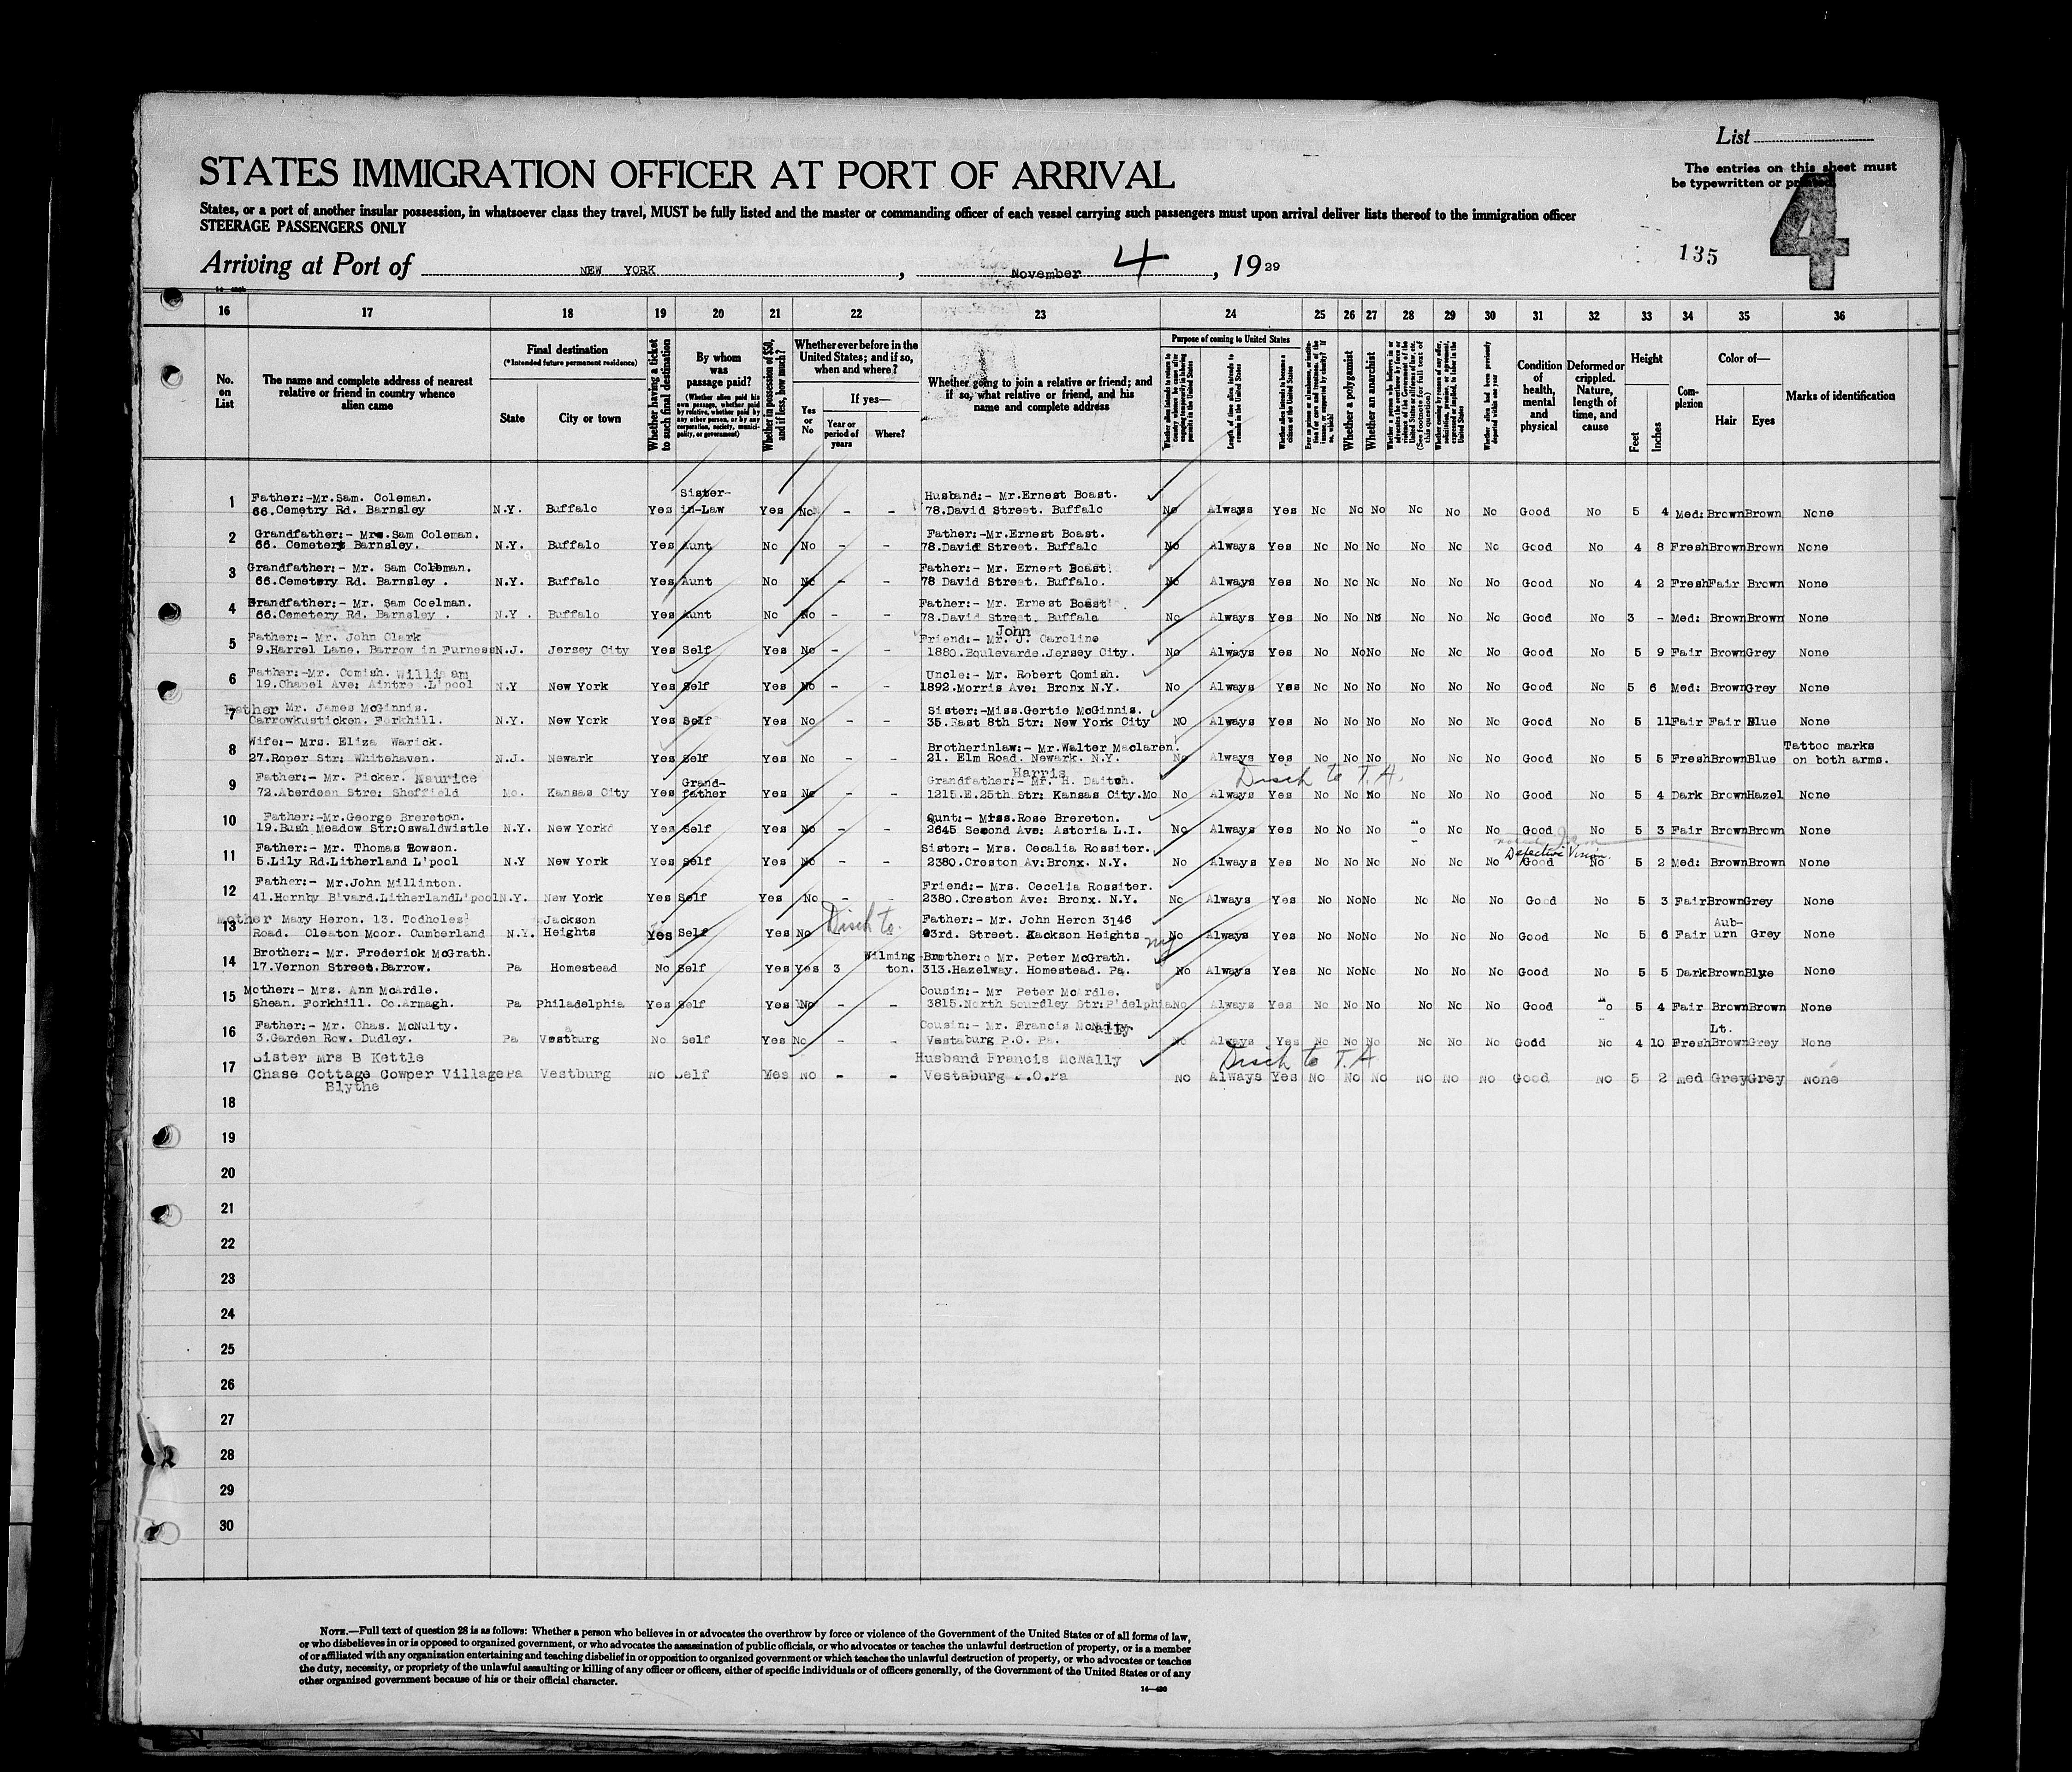 List
STATES IMMIGRATION OFFICER AT PORT OF ARRIVAL
The entries on this sheet must
be typewritten or
States, or a port of another insular possession, in whatsoever class they travel, MUST be fully listed and the master or commanding officer of each vessel carrying such passengers must upon arrival deliver lists thereof to the immigration officer
STEERAGE PASSENGERS ONLY
135 4
Arriving at Port of NEW YORK, November 4, 1929
16 17 18 19 20 21 22 23 24 25 26 27 28 29 30 31 32 33 34 35 36
No. on List
The name and complete address of nearest relative or friend in country whence alien came
Final destination
(*Intended future permanent residence)
State City or town
Whether having a ticket to such final destination
By whom was passage paid?
(Whether alien paid his own passage, whether paid by relative, whether paid by any other person, or by any corporation, society, municipality, or government)
Whether in possession of $50, and if less, how much?
Whether ever before in the United States; and if so, when and where?
Yes or No
If yes—
Year or period of years Where?
Whether going to join a relative or friend; and if so, what relative or friend, and his name and complete address
Purpose of coming to United States
Length of time alien intends to remain in the United States
Whether alien intends to become a citizen of the United States
Whether a polygamist
Whether an anarchist
(See footnote for full text of this question)
Whether alien had been previously deported within one year
Condition of health, mental and physical
Deformed or crippled. Nature, length of time, and cause
Height
Feet Inches
Complexion
Color of—
Hair Eyes
Marks of identification
1 Father:-Mr.Sam. Coleman. Sister- Husband:- Mr.Ernest Boast.
66.Cemetry Rd. Barnsley N.Y. Buffalo Yes in-Law Yes No - - 78.David Street. Buffalo No Always Yes No No No No No No Good No 5 4 Med: Brown Brown None
2 Grandfather:- Mr.Sam Coleman. Father:-Mr.Ernest Boast.
66. Cemetery Barnsley. N.Y. Buffalo Yes Aunt No No - - 78.David Street. Buffalo No Always Yes No No No No No No Good No 4 8 Fresh Brown Brown None
3 Grandfather:- Mr. Sam Coleman. Father:- Mr. Ernest Boast.
66.Cemetery Rd. Barnsley . N.Y. Buffalo Yes Aunt No No - - 78 David Street. Buffalo. No Always Yes No No No No No No Good No 4 2 Fresh Fair Brown None
4 Grandfather:- Mr. Sam Coelman. Father:- Mr. Ernest Boast
66.Cemetery Rd. Barnsley . N.Y . Buffalo Yes Aunt No No - - 78.David Street. Buffalo No Always Yes No No No No No No Good No 3 - Med: Brown Brown None
5 Father:- Mr. John Clark John Friend:- Mr. J. Caroline
9.Harrel Lane. Barrow in Furness N.J. Jersey City Yes Self Yes No - - 1880.Boulevarde.Jersey City. No Always Yes No No No No No No Good No 5 9 Fair Brown Grey None
6 Father:-Mr. Comish. William Uncle:- Mr. Robert Qomish.
19.Chapel Ave: Aintree .L'pool N.Y New York Yes Self Yes No - - 1892.Morris Ave: Bronx N.Y. No Always Yes No No No No No No Good No 5 6 Med: Brown Grey None
7 Father Mr. James McGinnis. Sister:-Miss.Gertie McGinnis.
Carrowkusticken. Forkhill. N.Y. New York Yes Self Yes No - - 35.East 8th Str: New York City NO Always Yes No No No No No No Good No 5 11 Fair Fair Blue None
8 Wife:- Mrs. Eliza Warick. Brotherinlaw:- Mr.Walter Maclaren. Tattoo marks
27.Roper Str: Whitehaven. N.J. Newark Yes Self Yes No - - 21. Elm Road. Newark. N.Y. No Always Yes No No No No No No Good No 5 5 Fresh Brown Blue on both arms.
9 Father:- Mr. Picker. Maurice Grand- Harris Grandfather:- Mr. H. Daitch. Disch to T.A.
72.Aberdeen Stre: Sheffield Mo. Kansas City Yes father Yes No - - 1215.E.25th Str: Kansas City.Mo No Always Yes No No No No No No Good No 5 4 Dark Brown Hazel None
10 Father:-Mr.George Brereton. Qunt:- Miss.Rose Brereton.
19.Bush Meadow Str:Oswaldwistle N.Y. New York Yes Self Yes No - - 2645 Second Ave: Astoria L.I. No Always Yes No No No No No No Good No 5 3 Fair Brown Brown None
11 Father:- Mr. Thomas Rowson. Sister:- Mrs. Cecalia Rossiter. Defective Vision.
5.Lily Rd.Litherland L'pool N.Y New York Yes Self Yes No - - 2380.Creston Av:Bronx. N.Y. No Always Yes No No No No No No Good No 5 2 Med: Brown Brown None
12 Father:- Mr.John Millinton. Friend:- Mrs. Cecelia Rossiter.
41.Hornby B'vard.Litherland L'pool N.Y. New York Yes Self Yes No - - 2380.Creston Ave: Bronx. N.Y. No Always Yes No No No No No No Good No 5 3 Fair Brown Grey None
13 Mother Mary Heron. 13. Todholes Jackson Disch to. Father:- Mr. John Heron 3146 Aub-
Road. Cleaton Moor. Cumberland N.Y. Heights Yes Self Yes No 83rd. Street. Jackson Heights ny No Always Yes No No No No No No Good No 5 6 Fair urn Grey None
14 Brother:- Mr. Frederick McGrath. Wilming Brother: Mr. Peter McGrath.
17.Vernon Street.Barrow. Pa Homestead No Self Yes Yes 3 ton. 313.Hazelway. Homestead. Pa. No Always Yes No No No No No No Good No 5 5 Dark Brown Blue None
15 Mother:- Mrs. Ann McArdle. Cousin:- Mr Peter McArdle.
Shean. Forkhill. Co.Armagh. Pa Philadelphia Yes Self Yes No - - 3815.North Sourdley Str:P'delphia No Always Yes No No No No No No Good No 5 4 Fair Brown Brown None
16 Father:- Mr. Chas. McNulty. Cousin:- Mr. Francis McNally Lt.
3.Garden Row. Dudley. Pa Vestburg No Self Yes No - - Vestaburg P.O. Pa. No Always Yes No No No No No No Good No 4 10 Fresh Brown Grey None
17 Sister Mrs B Kettle Husband Francis McNally Disch to T.A
Chase Cottage Cowper Village Pa Vestburg No Self Yes No - - Vestaburg P.O.Pa No Always Yes No No No No No No Good No 5 2 med Grey Grey None
Blythe
18
19
20
21
22
23
24
25
26
27
28
29
30
NOTE.—Full text of question 28 is as follows: Whether a person who believes in or advocates the overthrow by force or violence of the Government of the United States or of all forms of law,
or who disbelieves in or is opposed to organized government, or who advocates the assassination of public officials, or who advocates or teaches the unlawful destruction of property, or is a member
of or affiliated with any organization entertaining and teaching disbelief in or opposition to organized government or which teaches the unlawful destruction of property, or who advocates or teaches
the duty, necessity, or propriety of the unlawful assaulting or killing of any officer or officers, either of specific individuals or of officers generally, of the Government of the United States or of any
other organized government because of his or their official character.
14—480